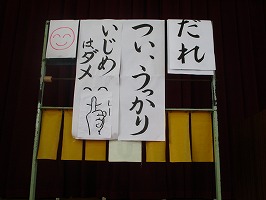 だれ
つい、うっかり
いじめ
はダメ
しーっ